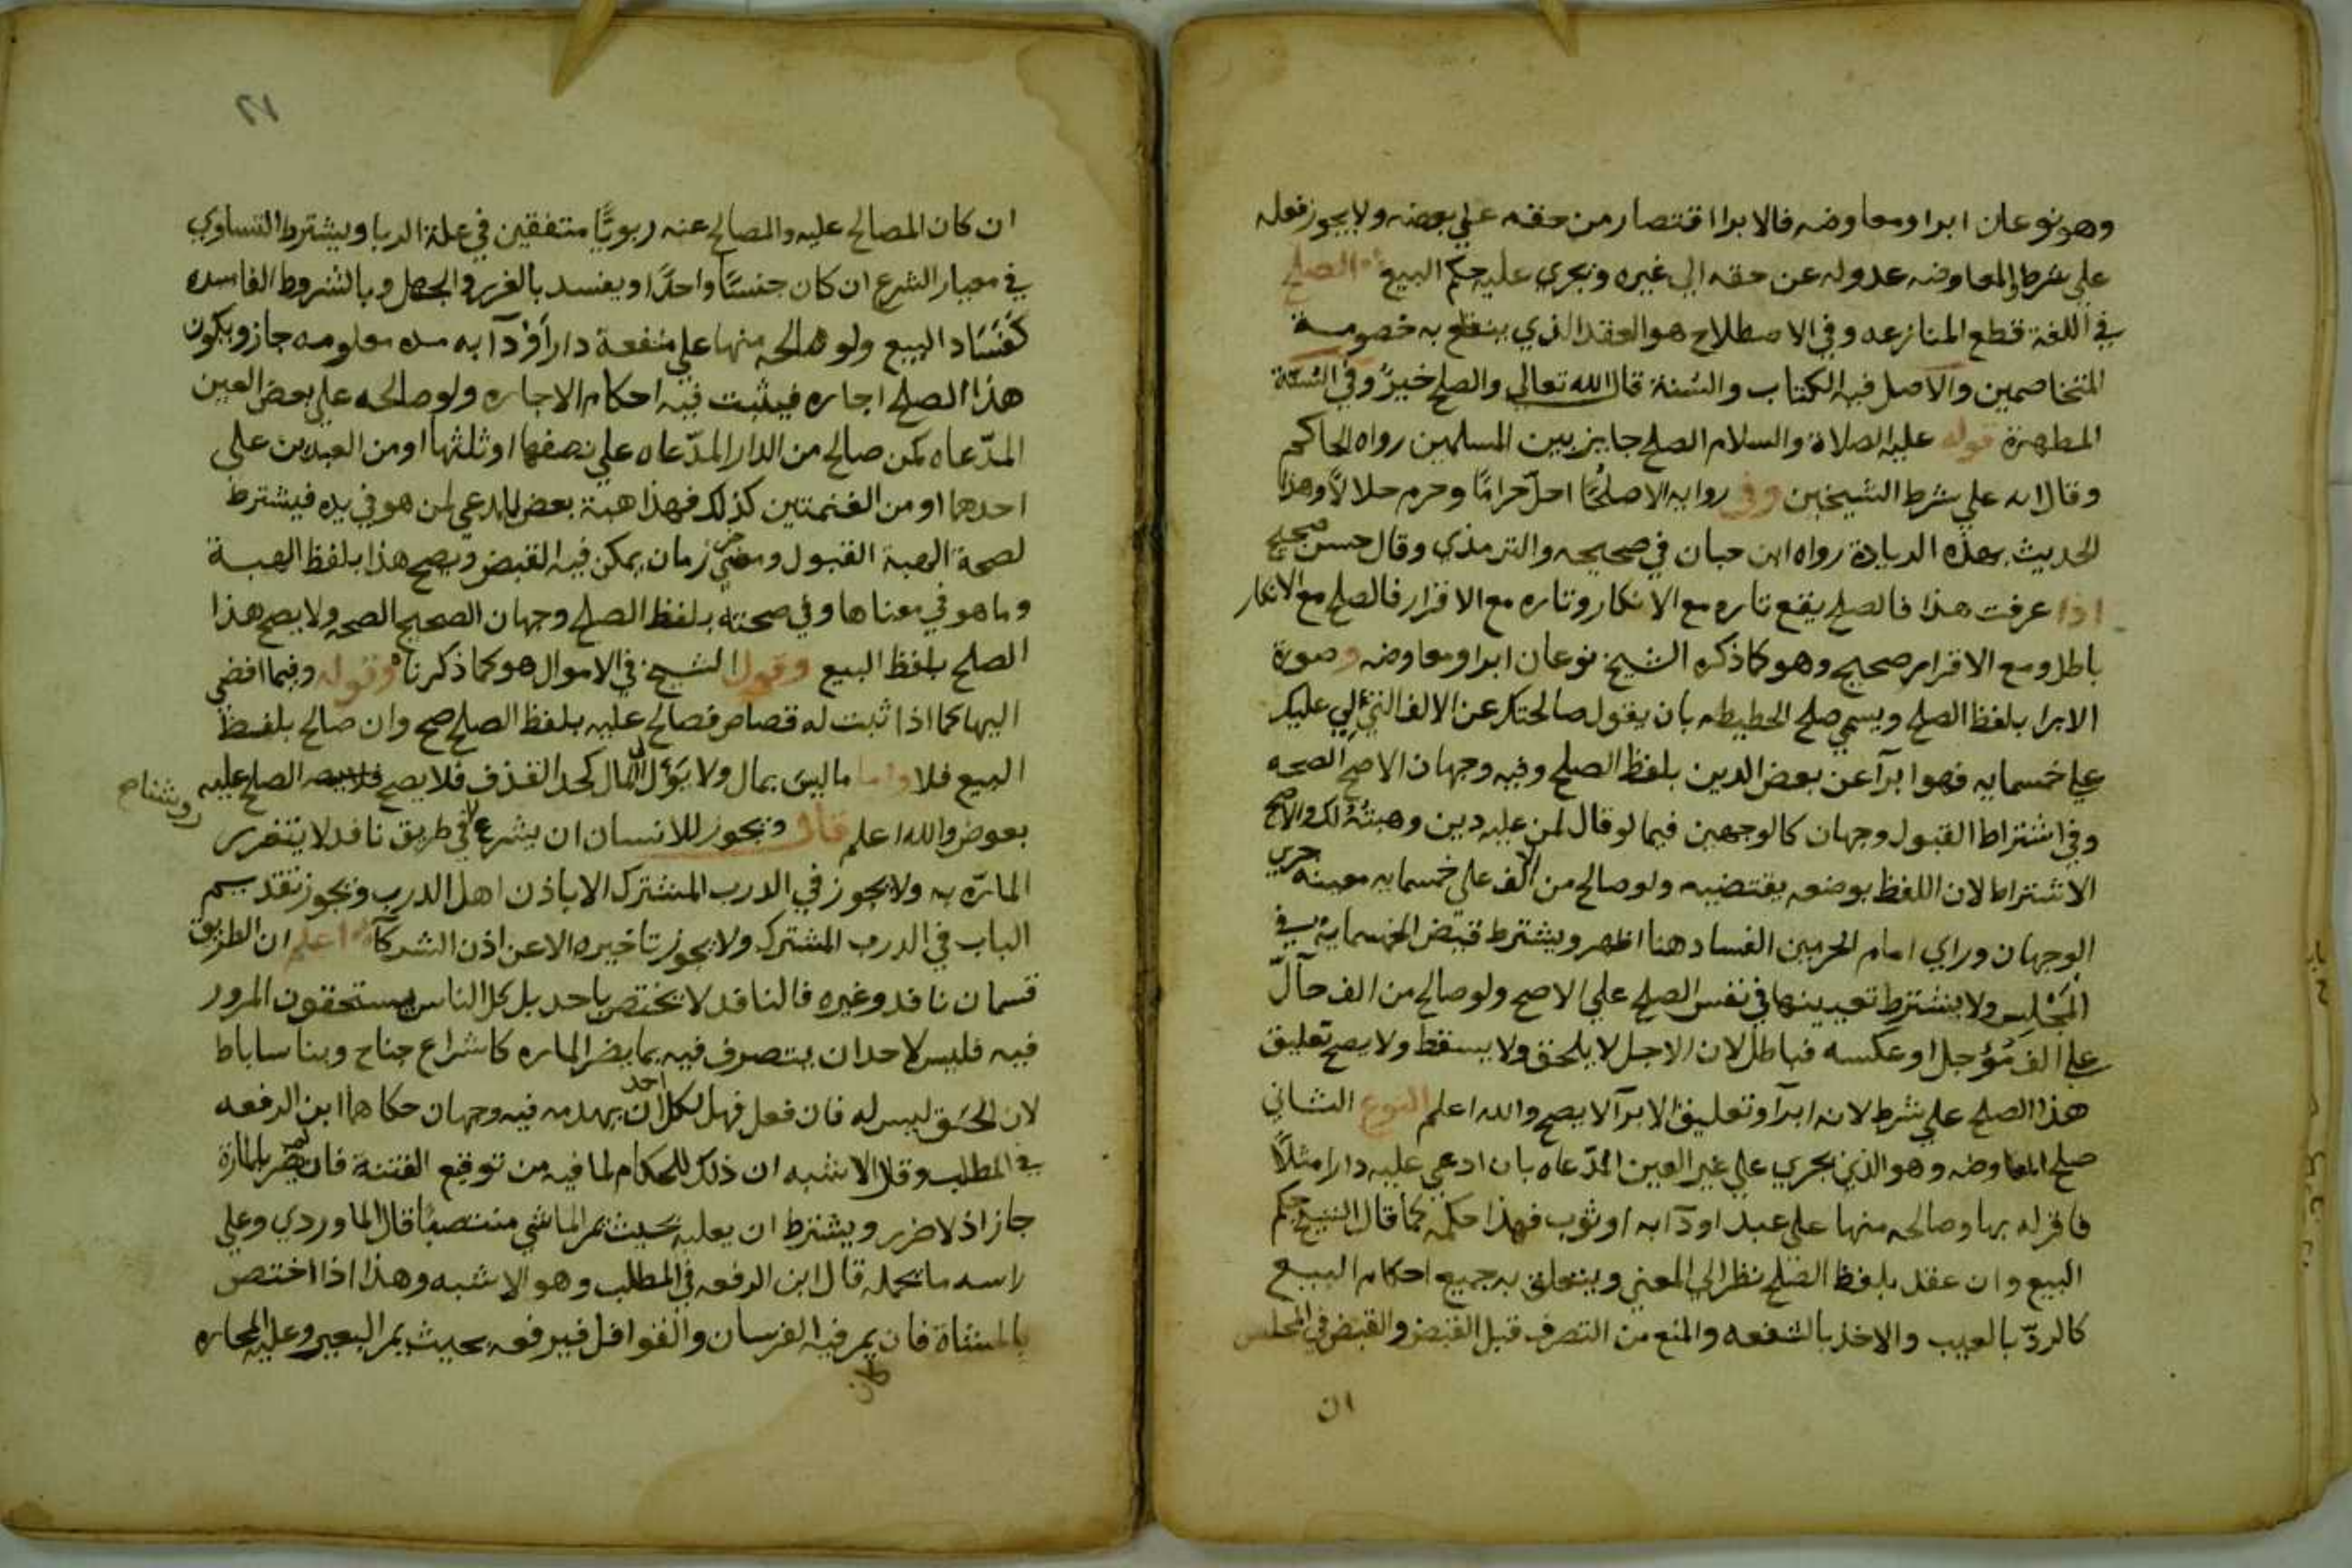 وهو نوعان ابرا ومعاوضه فالابرا اقتصار من حقه على بعضه ولا يجوز فعله
على شرط والمعاوضه عدوله عن حقه الى غيره ويجري عليه حكم البيع الصلح
في اللغة قطع المنازعه وفي الاصطلاح هو العقد الذي ينقطع به خصومة
المتخاصمين والاصل فيه الكتاب والسنة قال الله تعالى والصلح خيرٌ وفي السنة
المطهرة قوله عليه الصلاة والسلام الصلح جايز بين المسلمين رواه الحاكم
وقال انه على شرط الشيخين وفي روايه الا صلحًا احلّ حرامًا وحرم حلالاً وهذا
الحديث بهذه الزيادة رواه ابن حبان في صحيحه والترمذي وقال حسن صحيح
اذا عرفت هذا فالصلح يقع تاره مع الانكار وتاره مع الاقرار فالصلح مع الانكار
باطل ومع الاقرار صحيح وهو كما ذكره الشيخ نوعان ابرا ومعاوضه وصورة
الابرا بلفظ الصلح ويسمي صلح الحطيطه بان يقول صالحتك عن الالف التي لي عليك
على خمسمايه فهو ابرآ عن بعض الدين بلفظ الصلح وفيه وجهان الاصح الصحه
وفي اشتراط القبول وجهان كالوجهين فيما لو قال لمن عليه دين وهبتهُ لك والاصح
الاشتراط لان اللفظ بوضعه يقتضيه ولو صالح من الالف على خمسمايه معينه جري
الوجهان وراي امام الحرمين الفساد هنا اظهر ويشترط قبض الخمسمايه في
المَجْلِس ولا يشترط تعيينها في نفس الصلح على الاصح ولو صالح من الف حآلّ
على الف مُؤجل او عكسه فباطل لان الاجل لا يلحق ولا يسقط ولا يصح تعليق
هذا الصلح على شرط لانه ابرآ وتعليق الابرآ لا يصح والله اعلم النوع الثاني
صلح المعاوضه وهو الذي يجري على غير العين المدّعاه بان ادعي عليه دارا مثلاً
فاقر له بها وصالحه منها على عبد او دآبه او ثوب فهذا حكمه كما قال الشيخ حكم
البيع وان عقد بلفظ الصلح نظرا الي المعني ويتعلق به جميع احكام البيع
كالردّ بالعيب والاخذ بالشفعه والمنع من التصرف قبل القبض والقبض في المجلس
ان
ان كان المصالح عليه والمصالح عنه ربويًّا متفقين في علة الربا ويشترط التساوي
في معيار الشرع ان كان جنسًا واحدًا ويفسد بالغرر والجهل وبالشروط الفاسده
كَفَسَاد البيع ولو صالحه منها على منفعة دار أَوْ دآبه مده معلومه جاز ويكون
هذا الصلح اجاره فيثبت فيه احكام الاجاره ولو صالحه على بعض العين
المدّعاه كمن صالح من الدار المدّعاه على نصفها او ثلثها او من العبدين على
احدهما او من الغنمتين كذلك فهذا هبة بعض المدعي لمن هو في يده فيشترط
لصحة الهبة القبول ومضي زمان يمكن فيه القبض ويصح هذا بلفظ الهبة
وما هو في معناها وفي صحته بلفظ الصلح وجهان الصحيح الصحه ولا يصح هذا
الصلح بلفظ البيع وقول الشيخ في الاموال هو كما ذكرناه وقوله وفيما افضي
اليها كما اذا ثبت له قصاص فصالح عليه بلفظ الصلح صح وان صالح بلفظ
البيع فلا واما ما ليسَ بمال ولا يَؤل الى المال كحد القذف فلا يصح الصلح عليه
بعوض والله اعلم قال ويجوز للانسان ان يشرع روشنا في طريق نافد لا يتضرر
المارّه به ولا يجوز في الدرب المشترك الا باذن اهل الدرب ويجوز تقديم
الباب في الدرب المشترك ولا يجوز تاخيره الا عن اذن الشركآء اعلم ان الطريق
قسمان نافد وغيره فالنافد لا يختص باحد بل كل الناس يستحقون المرور
فيه فليس لاحد ان يتصرف فيه بما يضر الماره كاشراع جناح وبنا ساباط
لان الحَق ليس له فان فعل فهل لكل احد ان يهدمه فيه وجهان حكاهما ابن الرفعه
في المطلب وقال الاشبه ان ذلك للحكام لما فيه من توقع الفتنة فان لم يضر بالمارة
جاز اذ لا ضرر ويشترط ان يعليه بحيث يمر الماشي منتصبًا قال الماوردي وعلى
راسه ما يحمله قال ابن الرفعه في المطلب وهو الاشبه وهذا اذا اختص
بالمشاة فان كان يمر فيه الفرسان والقوافل فيرفعه بحيث يمر البعير وعليه المحاره